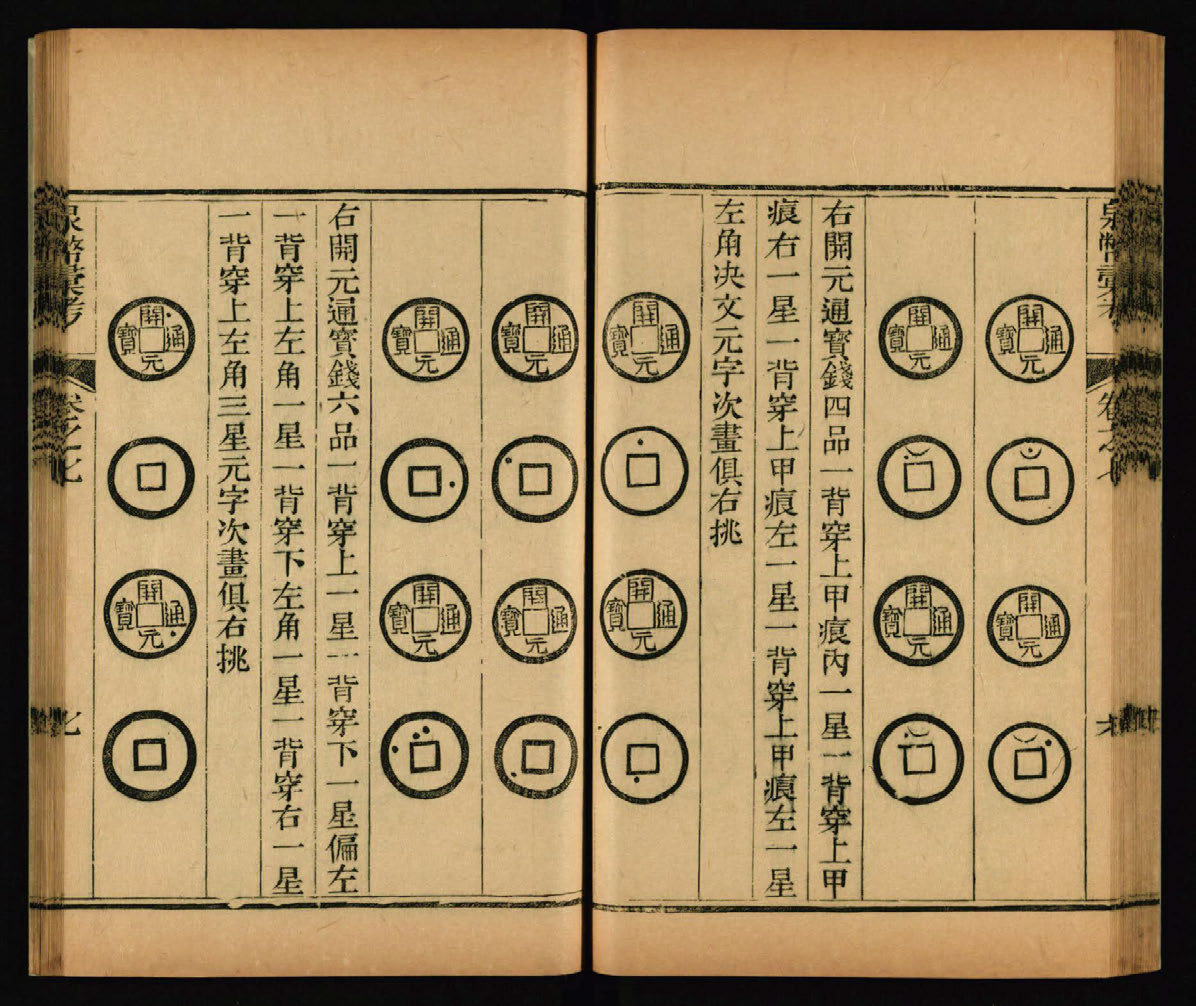 泉幣彙考
卷之七
開元通寶
開元通寶
開元通寶
開元通寶
右開元通寶錢四品一背穿上甲痕內一星一背穿上甲
痕右一星一背穿上甲痕左一星一背穿上甲痕左一星
左角決文元字次畫俱右挑
開元通寶
開元通寶
開元通寶
開元通寶
開元通寶
開元通寶
右開元通寶錢六品一背穿上一星一背穿下一星偏左
一背穿上左角一星一背穿下左角一星一背穿右一星
一背穿上左角三星元字次畫俱右挑
開元通寶
開元通寶
泉幣彙考
卷之七